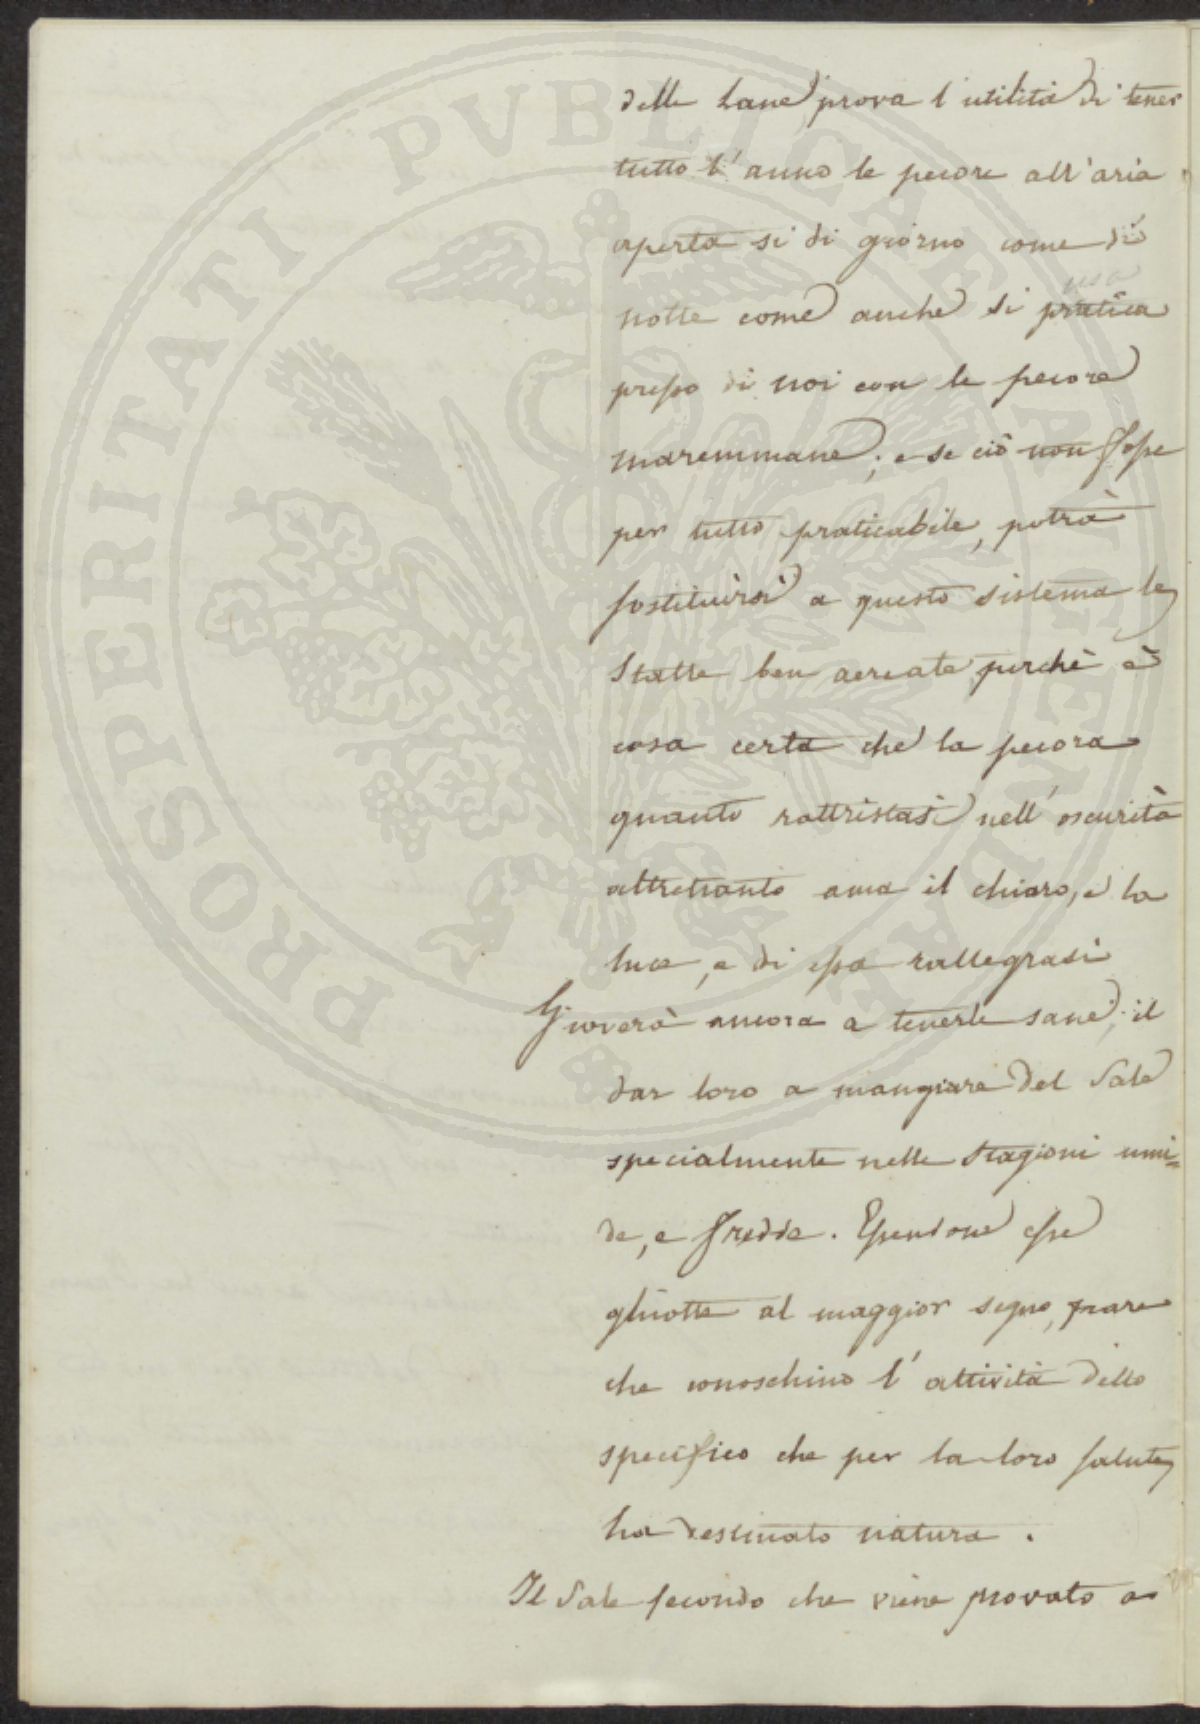 delle Lane prova l'utilità di tener
tutto l'anno le pecore all'aria
aperta si di giorno come di
usa
notte come anche si pratica
presso di noi con le pecore
maremmane; e se ciò non fosse
per tutto praticabile, potrà
sostituirsi a questo sistema le
Stalle ben aereate perchè è
cosa certa che la pecora
quanto rattristasi nell'oscurità
altrettanto ama il chiaro, e la
luce, e di essa rallegrasi
Gioverà ancora a tenerle sane, il
dar loro a mangiare del Sale
specialmente nelle Stagioni umi=
de, e fredde. Essendone esse
ghiotte al maggior segno, pare
che conoschino l'attività dello
specifico che per la loro salute
ha destinato natura.
Il Sale secondo che viene provato a
PROSPERITATI PVBLICAE AVGENDAE